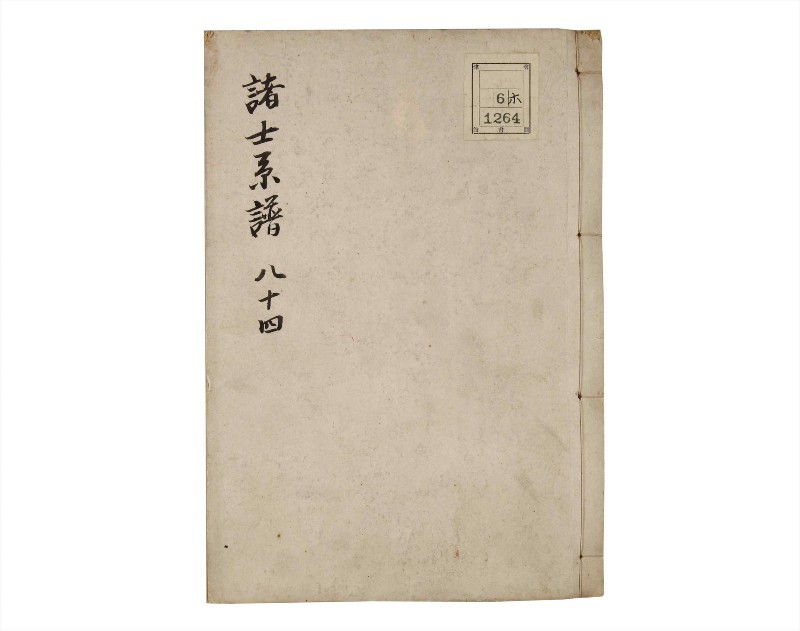 諸士系譜 八十四
6 ホ
1264